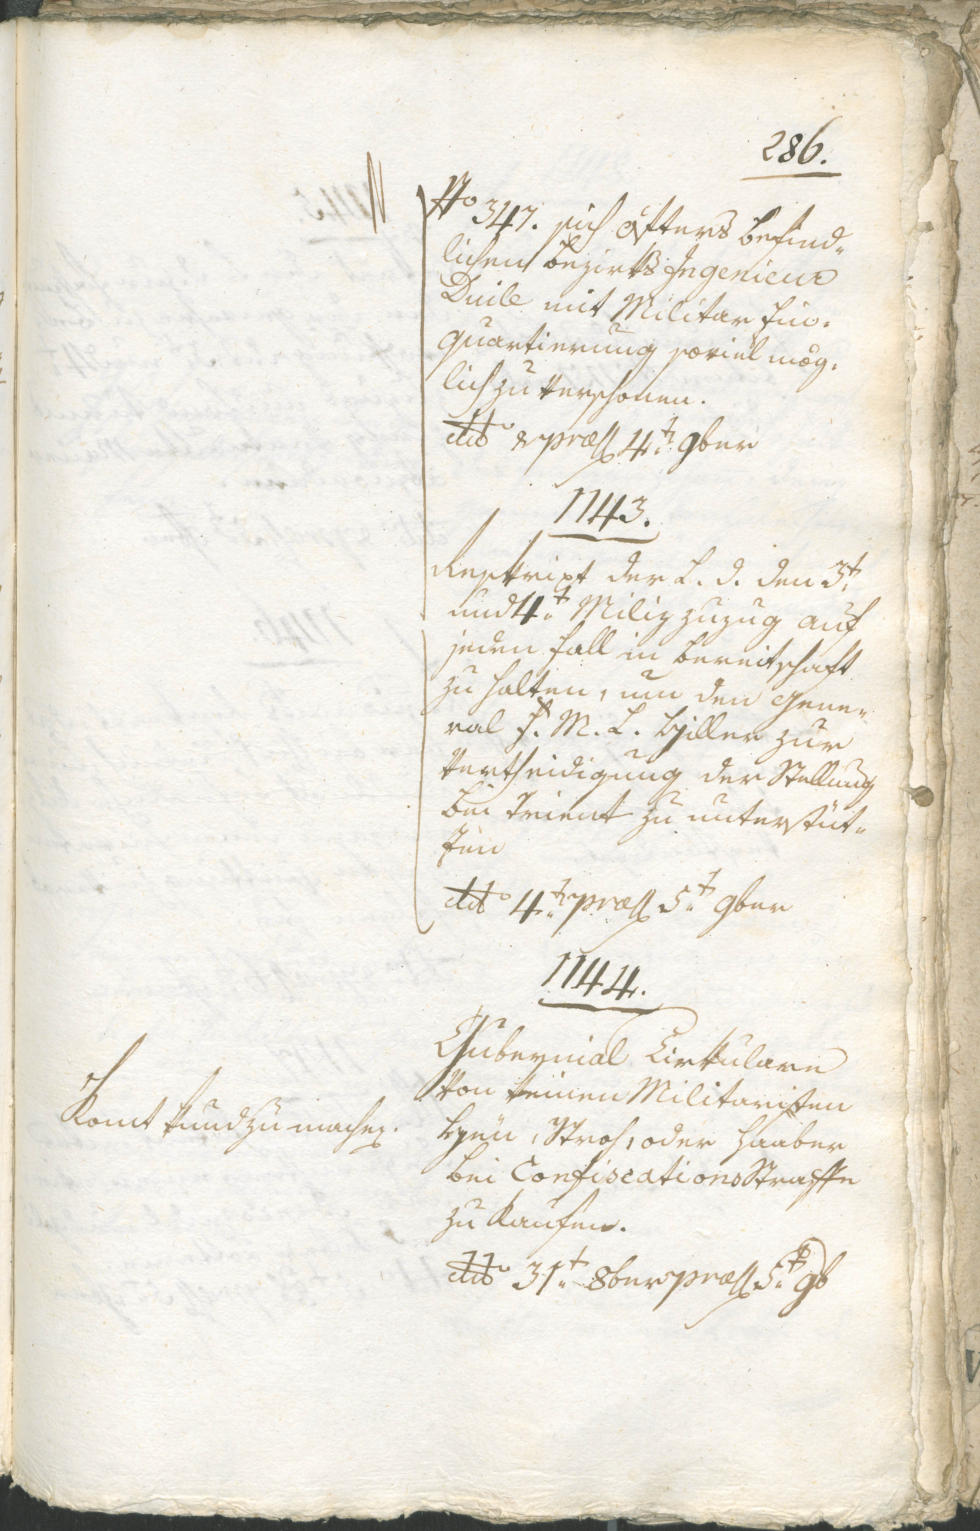 286.
No 347. sich öfters befind-
lichen Bezirks Ingenieur
Duile mit Militar Ein-
quartierung soviel mög-
lich zu verschonen.
ddto & præs 4t. 9ber
1143.
Reskript der L. d. den 3t.
und 4t. Miliz zuzug auf
jeden Fall in bereitschaft
zu halten, um den Gene-
ral F. M. L. Hiller zur
Vertheidigung der Stellung
bei Trient zu unterstüt-
zen
ddto 4t. præs 5t. 9ber
1144.
Gubernial Cirkulare
von keinen Militaristen
Komt kund zu machen.
Heu, Stroh, oder Haaber
bei Confiscations Straffe
zu kaufen.
ddto 31t. 8ber præs 5t. 9b